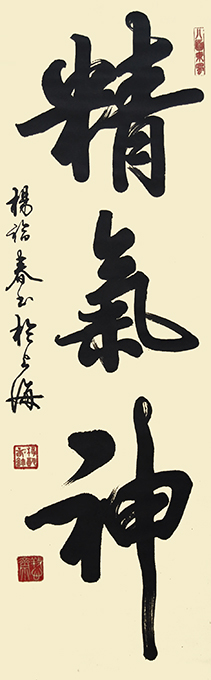 精氣神
楊治春書於上海